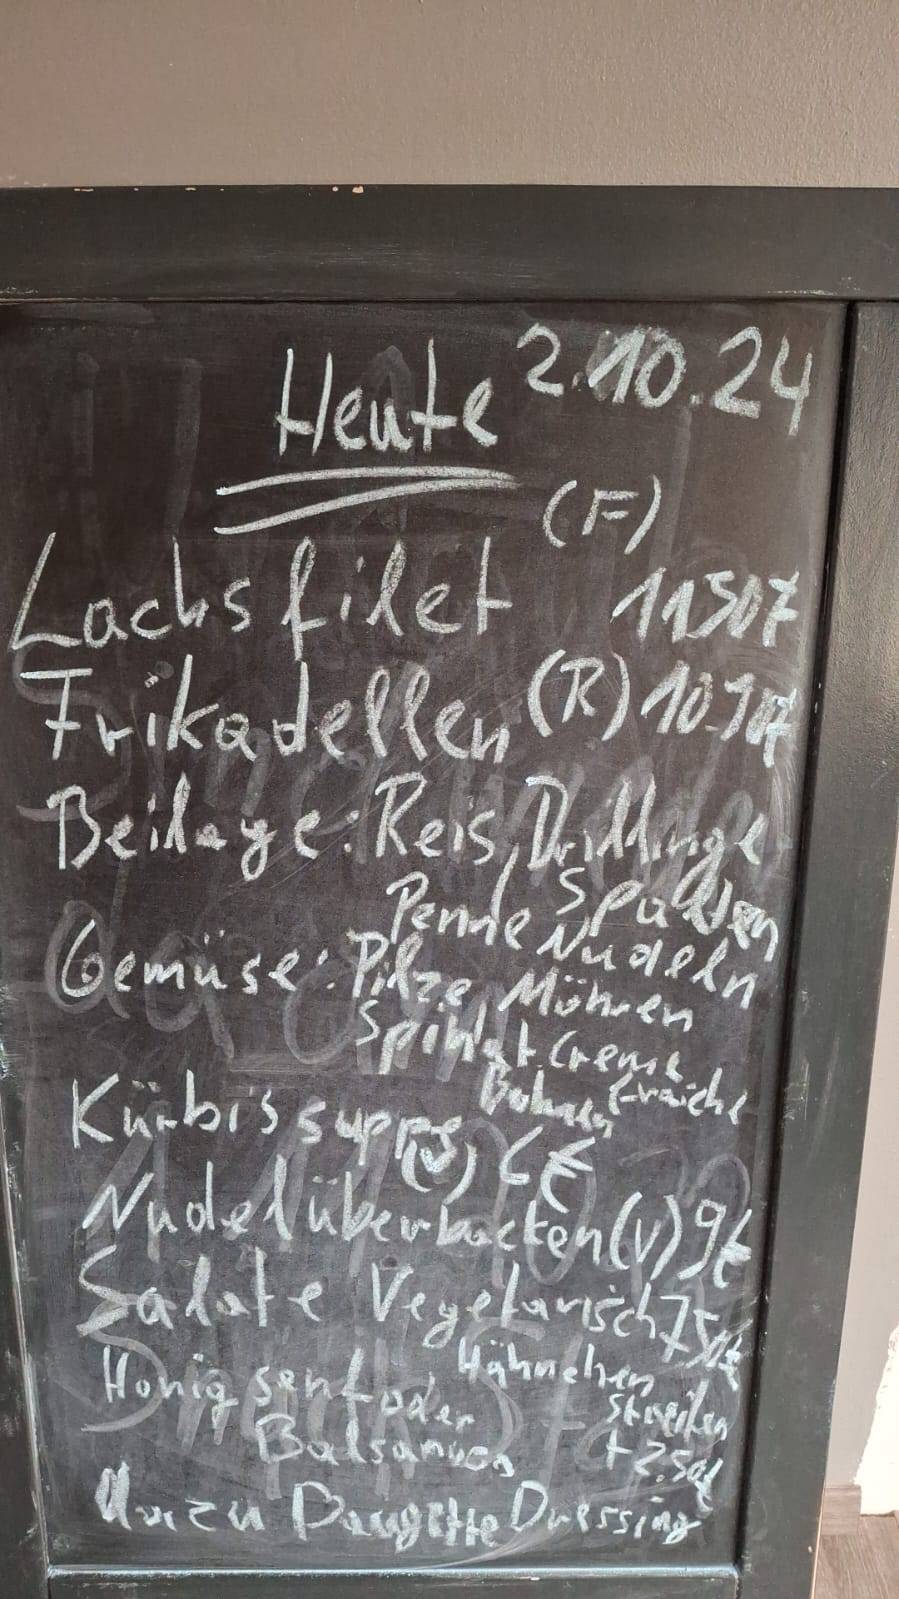 Heute 2.10.24
(F)
Lachsfilet 11.50€
Frikadellen (R) 10.90€
Beilage: Reis, Drillinge
Spalten
Penne Nudeln
Gemüse: Pilze Möhren
Spinat Creme
Bohnen fraiche
Kürbissuppe
(V) 6€
Nudelüberbacken (V) 9€
Salate Vegetarisch 7.50€
Hähnchen
Honig senf oder Streifen
Balsamico + 2.50€
Dressing